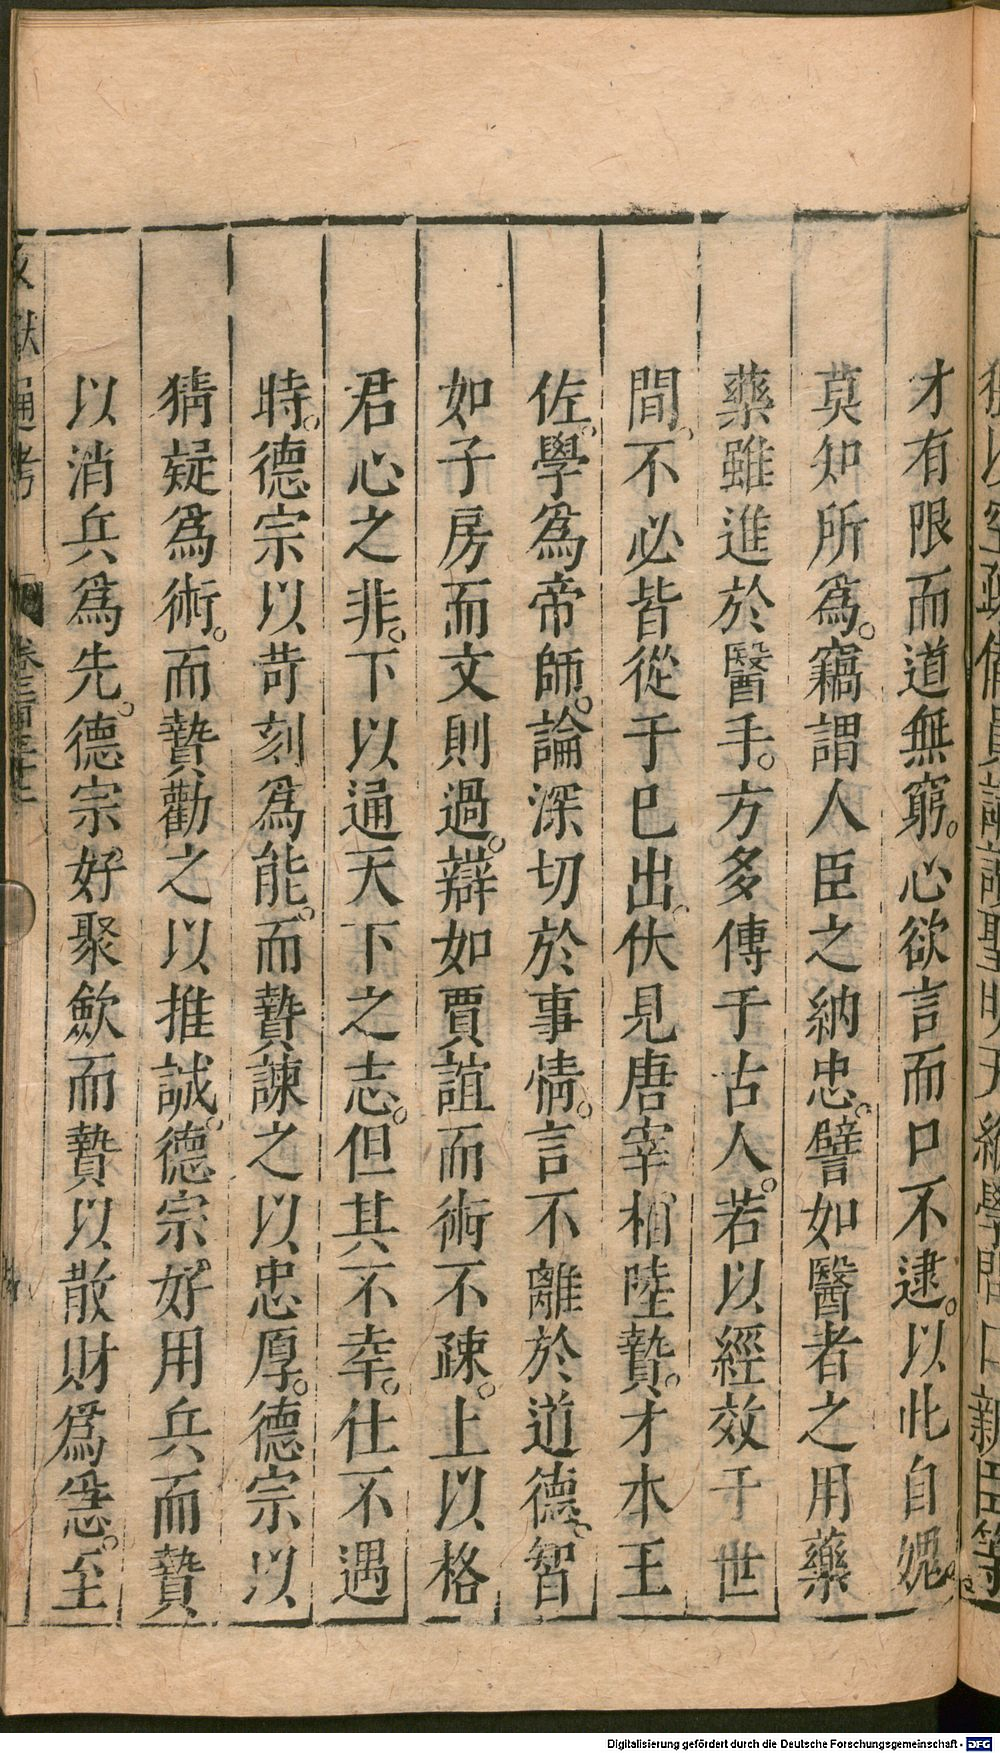 才有限而道無窮。心欲言而口不逮。以此自媿。
莫知所爲。竊謂人臣之納忠。譬如醫者之用藥
藥雖進於醫手。方多傳于古人。若以經效于世
間。不必皆從于巳出。伏見唐宰相陸贄。才本王
佐。學爲帝師。論深切於事情。言不離於道德。智
如子房而文則過。辯如賈誼而術不疎。上以格
君心之非。下以通天下之志。但其不幸。仕不遇
時。德宗以苛刻爲能。而贄諫之以忠厚。德宗以
猜疑爲術。而贄勸之以推誠。德宗好用兵而贄
以消兵爲先。德宗好聚歛而贄以散財爲急。至
文獻通考
Digitalisierung gefördert durch die Deutsche Forschungsgemeinschaft - DFG